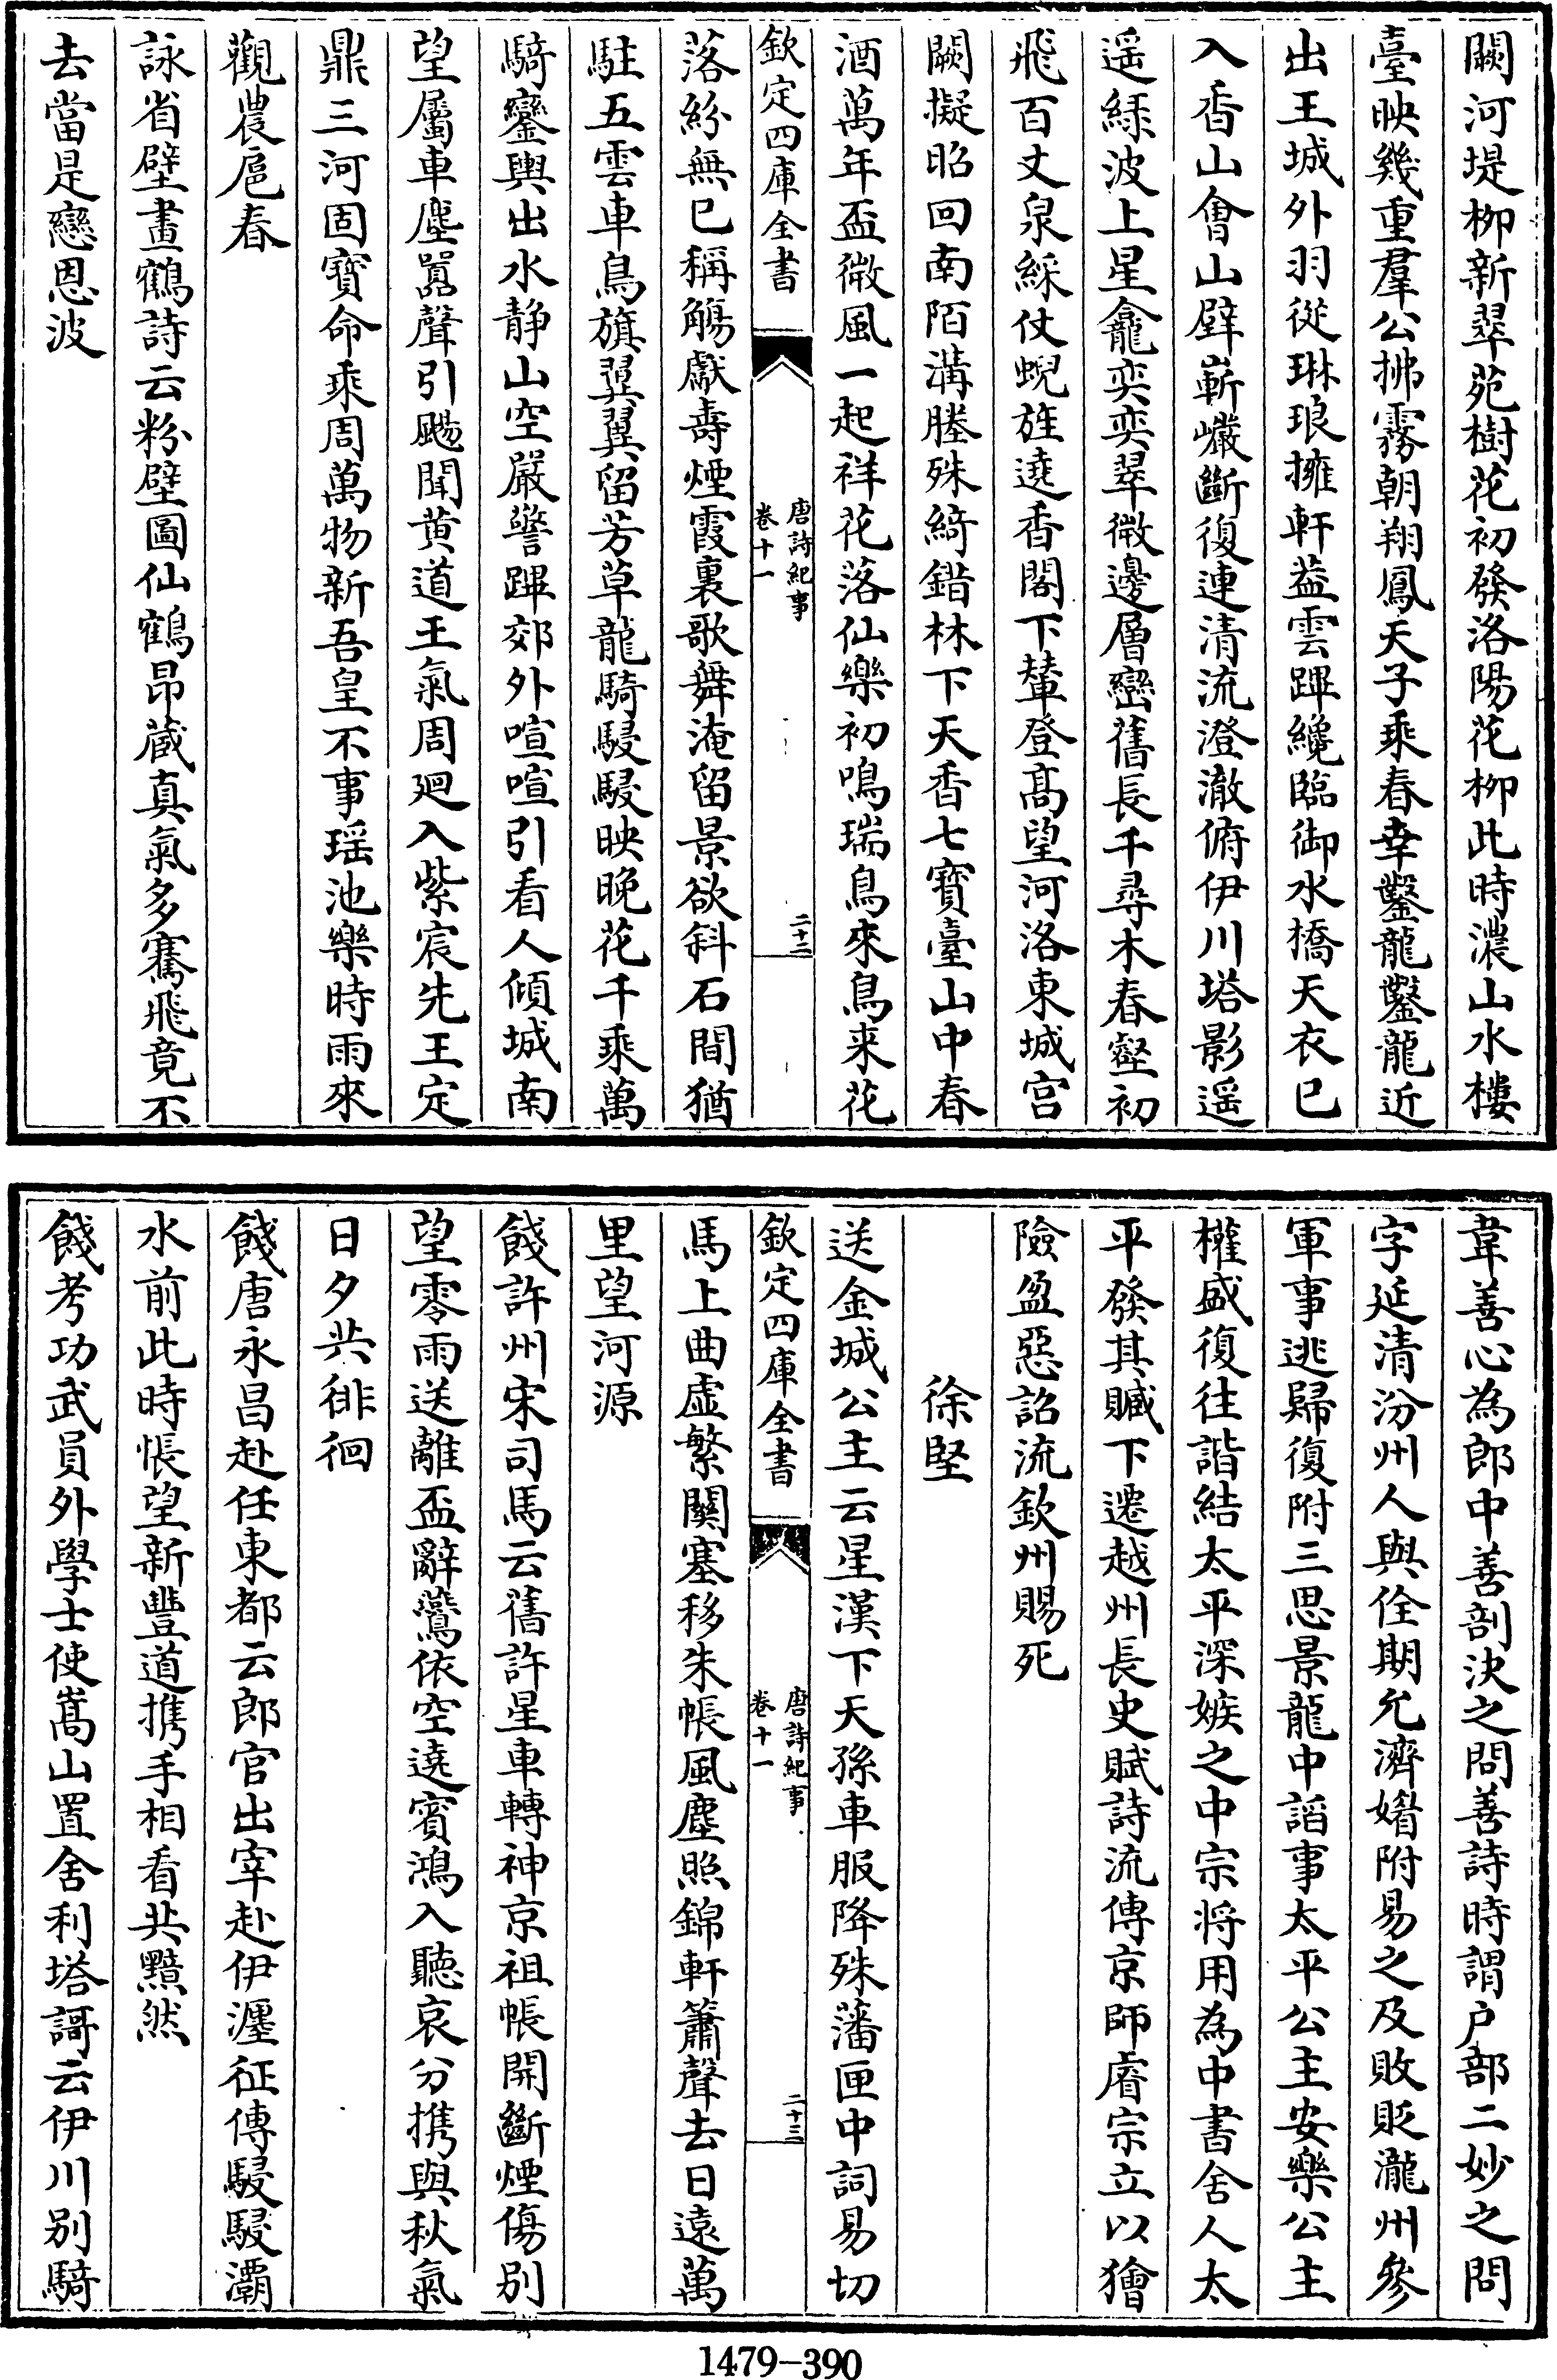 闕河堤柳新翠苑樹花初發洛陽花柳此時濃山水樓
臺映幾重羣公拂霧朝翔鳳天子乘春幸鑿龍鑿龍近
出王城外羽從琳琅擁軒葢雲蹕纔臨御水橋天衣已
入香山會山壁嶄巖斷復連清流澄澈俯伊川塔影遥
遥緑波上星龕奕奕翠微邊層巒舊長千尋木春壑初
飛百丈泉綵仗蜺旌遶香閣下輦登高望河洛東城宫
闕擬昭回南陌溝塍殊綺錯林下天香七寶臺山中春
酒萬年盃微風一起祥花落仙樂初鳴瑞鳥來鳥来花
欽定四庫全書
唐詩紀事
卷十一
二十二
落紛無已稱觴獻壽煙霞裏歌舞淹留景欲斜石間猶
駐五雲車鳥旗翼翼留芳草龍騎駸駸映晚花千乘萬
騎鑾輿出水静山空嚴警蹕郊外喧喧引看人傾城南
望屬車塵嚣聲引颺聞黄道王氣周廻入紫宸先王定
鼎三河固寶命乘周萬物新吾皇不事瑶池樂時雨來
觀農扈春
詠省壁畫鶴詩云粉壁圖仙鶴昂藏真氣多騫飛竟不
去當是戀恩波
韋善心為郎中善剖決之問善詩時謂户部二妙之問
字延清汾州人與佺期允濟媢附易之及敗貶瀧州參
軍事逃歸復附三思景龍中諂事太平公主安樂公主
權盛復往諧結太平深嫉之中宗将用為中書舍人太
平發其贓下遷越州長史賦詩流傳京師睿宗立以獪
險盈惡詔流欽州賜死
徐堅
送金城公主云星漢下天孫車服降殊藩匣中詞易切
欽定四庫全書
唐詩紀事
卷十一
二十三
馬上曲虚繁關塞移朱帳風塵照錦軒簫聲去日遠萬
里望河源
餞許州宋司馬云舊許星車轉神京祖帳開斷煙傷别
望零雨送離盃辭鶯依空遶賓鴻入聽哀分携與秋氣
日夕共徘徊
餞唐永昌赴任東都云郎官出宰赴伊瀍征傳駸駸灞
水前此時悵望新豐道携手相看共黯然
餞考功武員外學士使嵩山置舍利塔謌云伊川别騎
1479-390